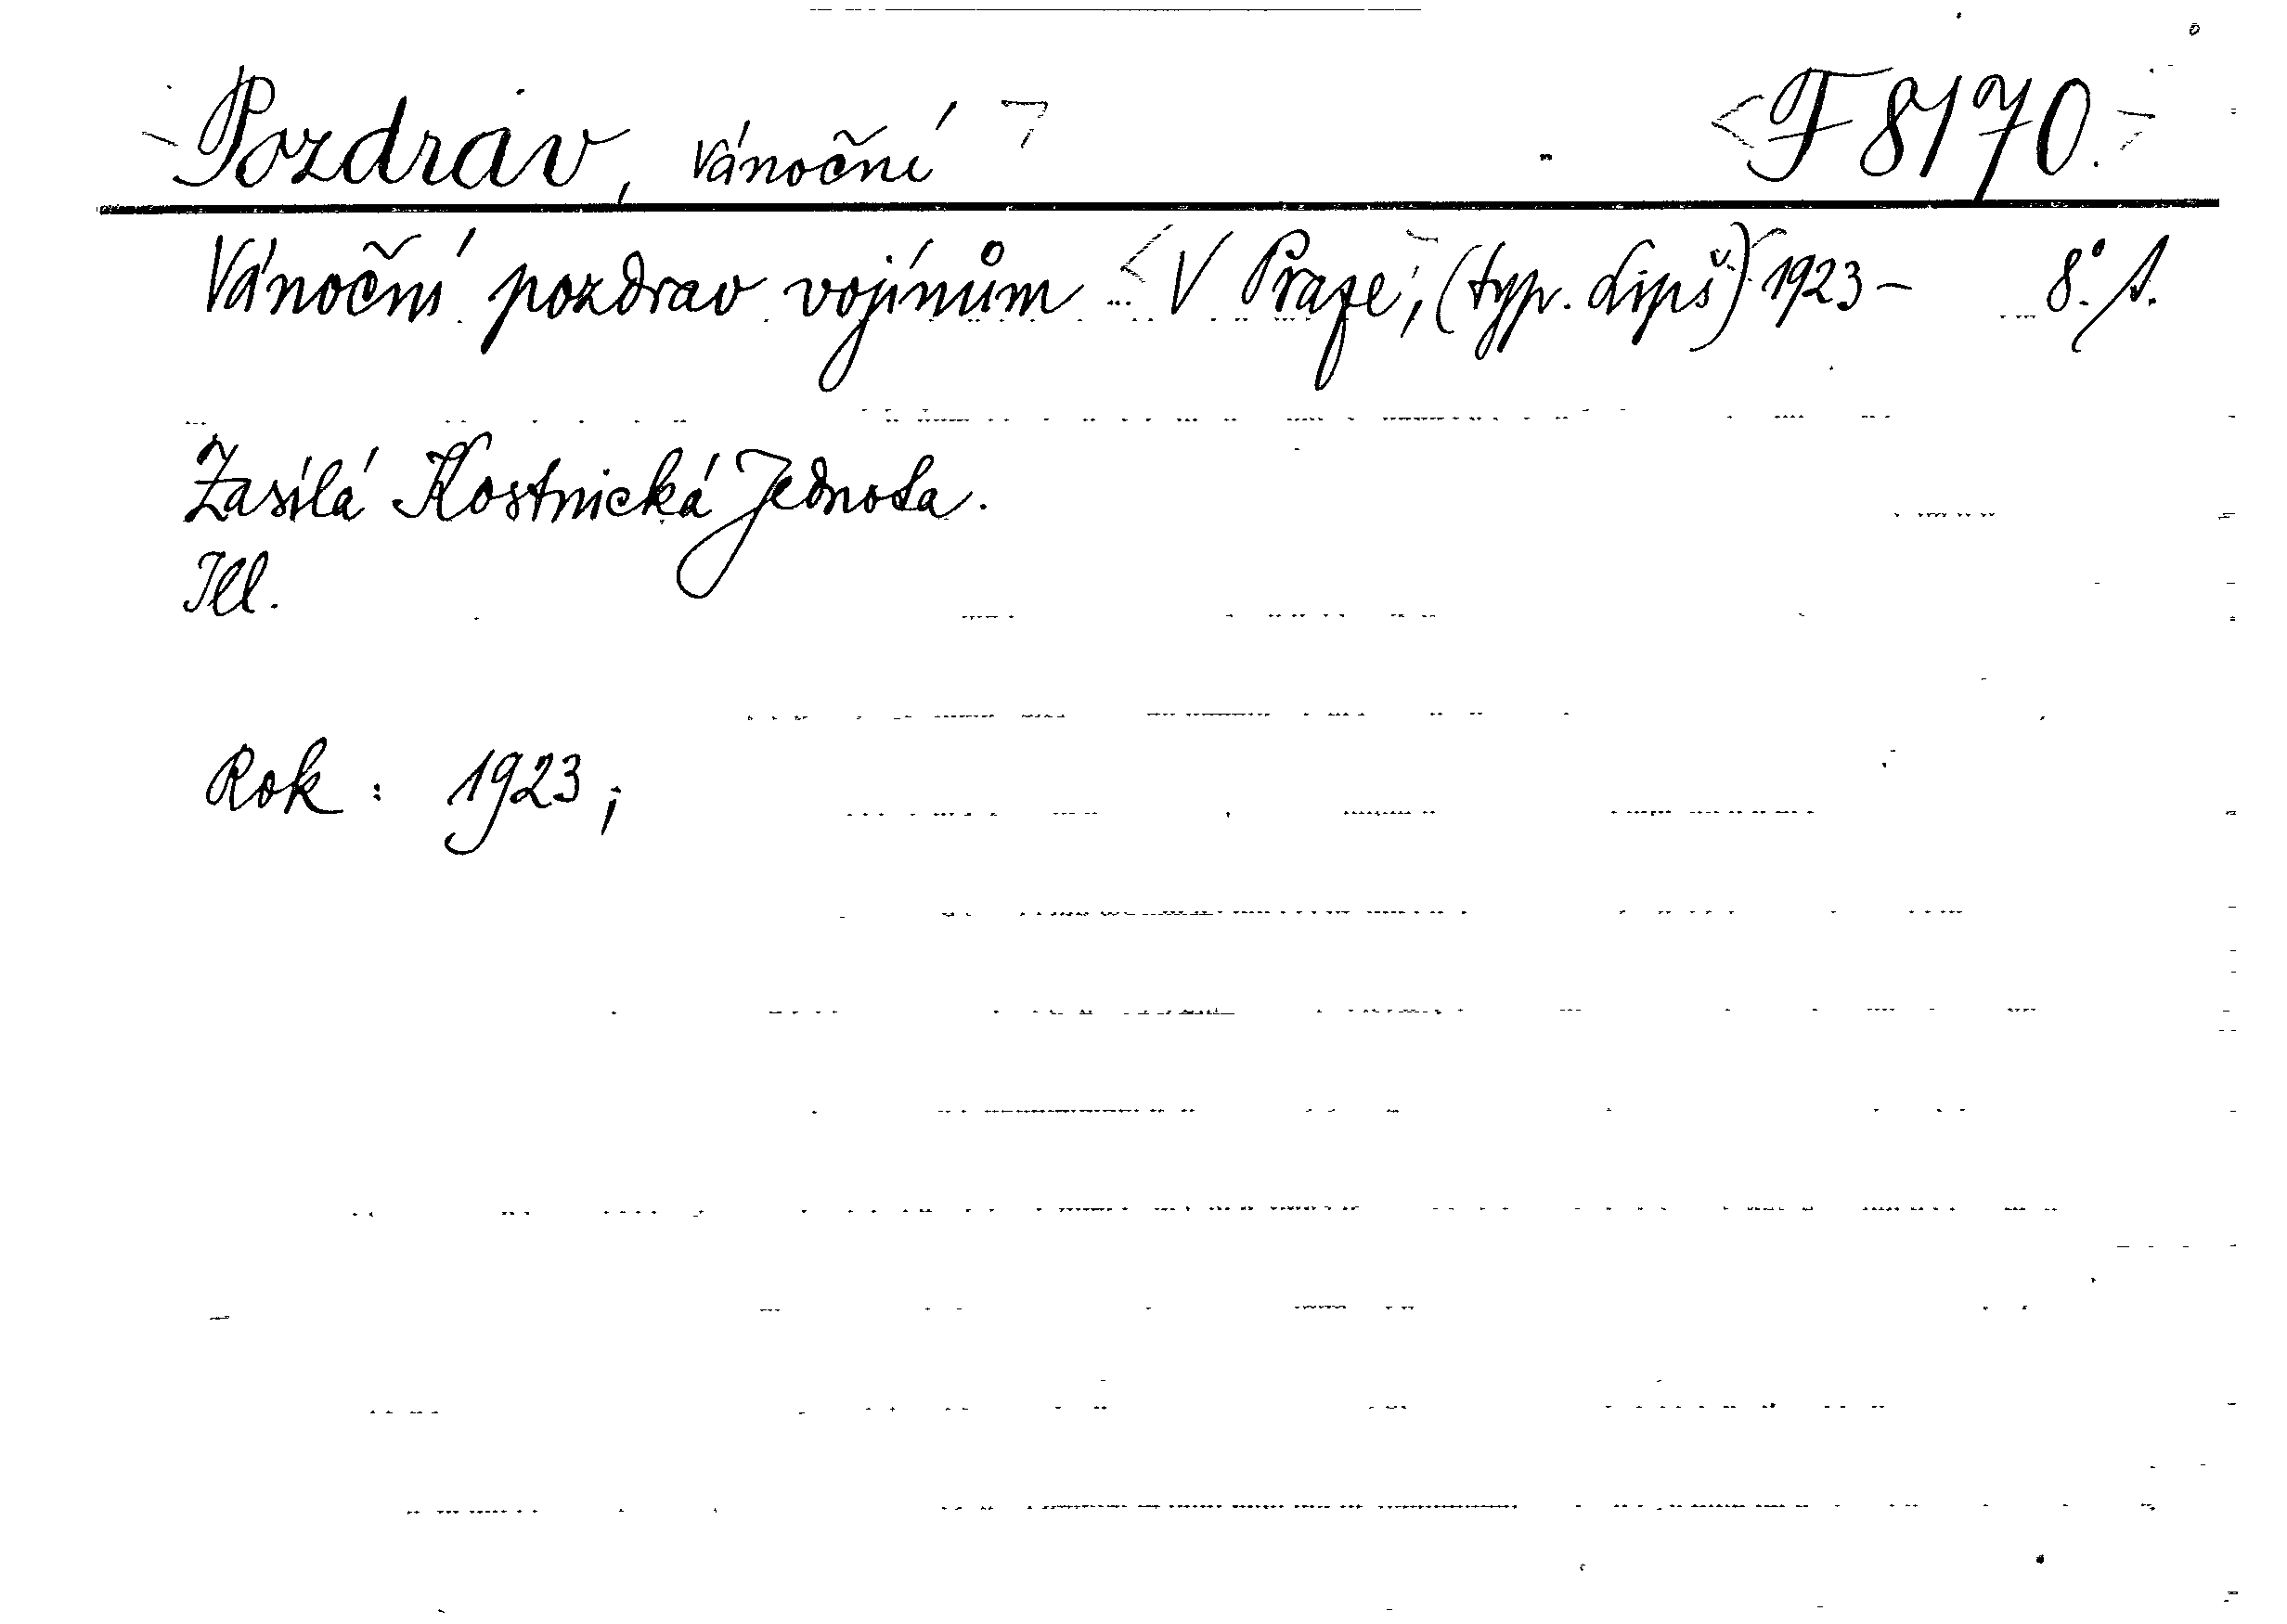 Pozdrav, vánoční F 8170.
Vánoční pozdrav vojínům V Praze, (typ. Lipš) 1923 – 8.° s.
Zasílá Kostnická Jednota.
Ill.
Rok : 1923 ;